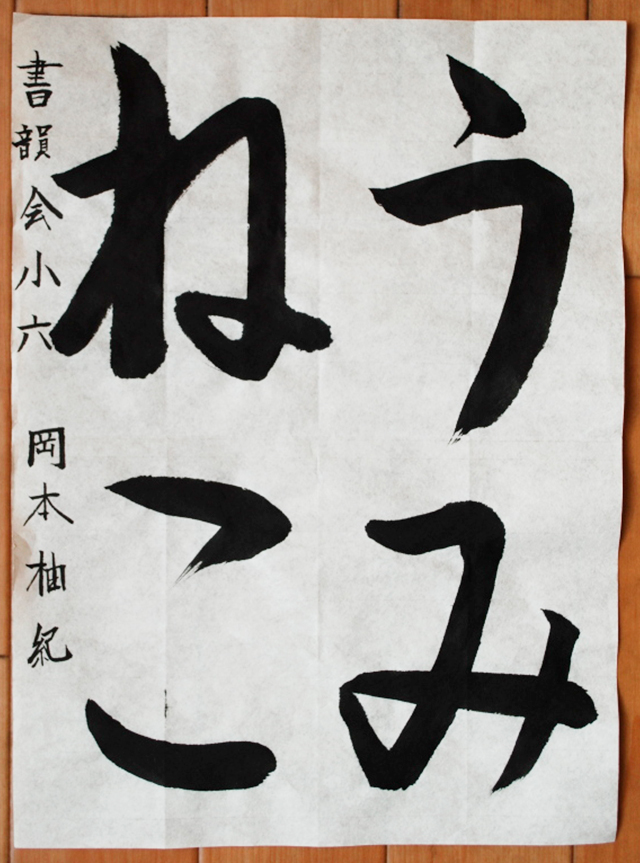 うみ
ねこ
書韻会小六 岡本柚紀